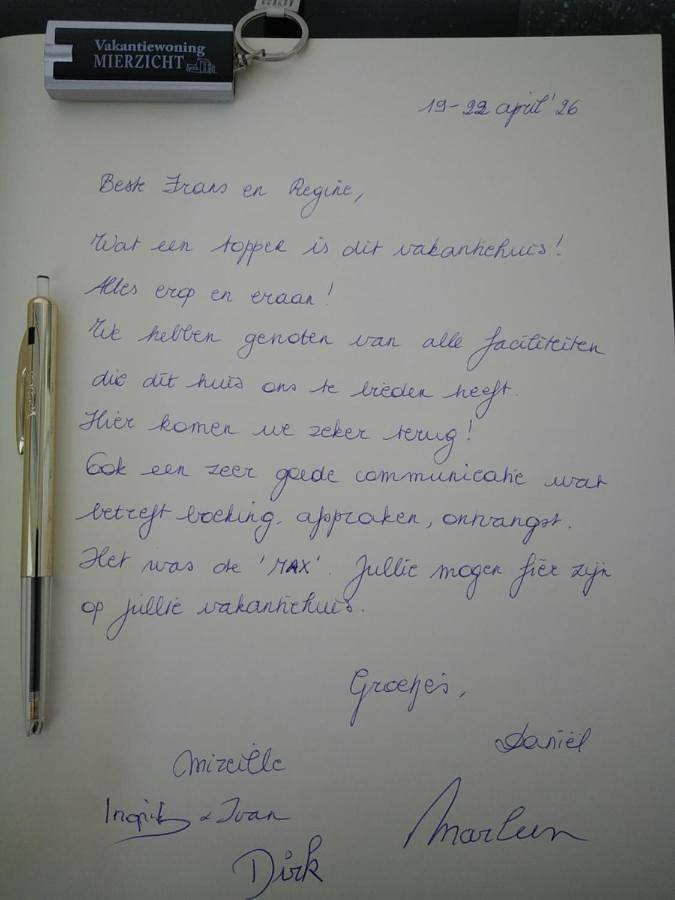 Vakantiewoning
MIERZICHT
19-22 april '26
Beste Frans en Regine,
Wat een topper is dit vakantiehuis!
Alles erop en eraan!
We hebben genoten van alle faciliteiten
die dit huis ons te bieden heeft.
Hier komen we zeker terug!
Ook een zeer goede communicatie wat
betreft boeking, afspraken, ontvangst.
Het was de 'MAX'. Jullie mogen fier zijn
op jullie vakantiehuis.
Groetjes,
Daniël
Mireille
Ingrid & Ivan
Marleen
Dirk